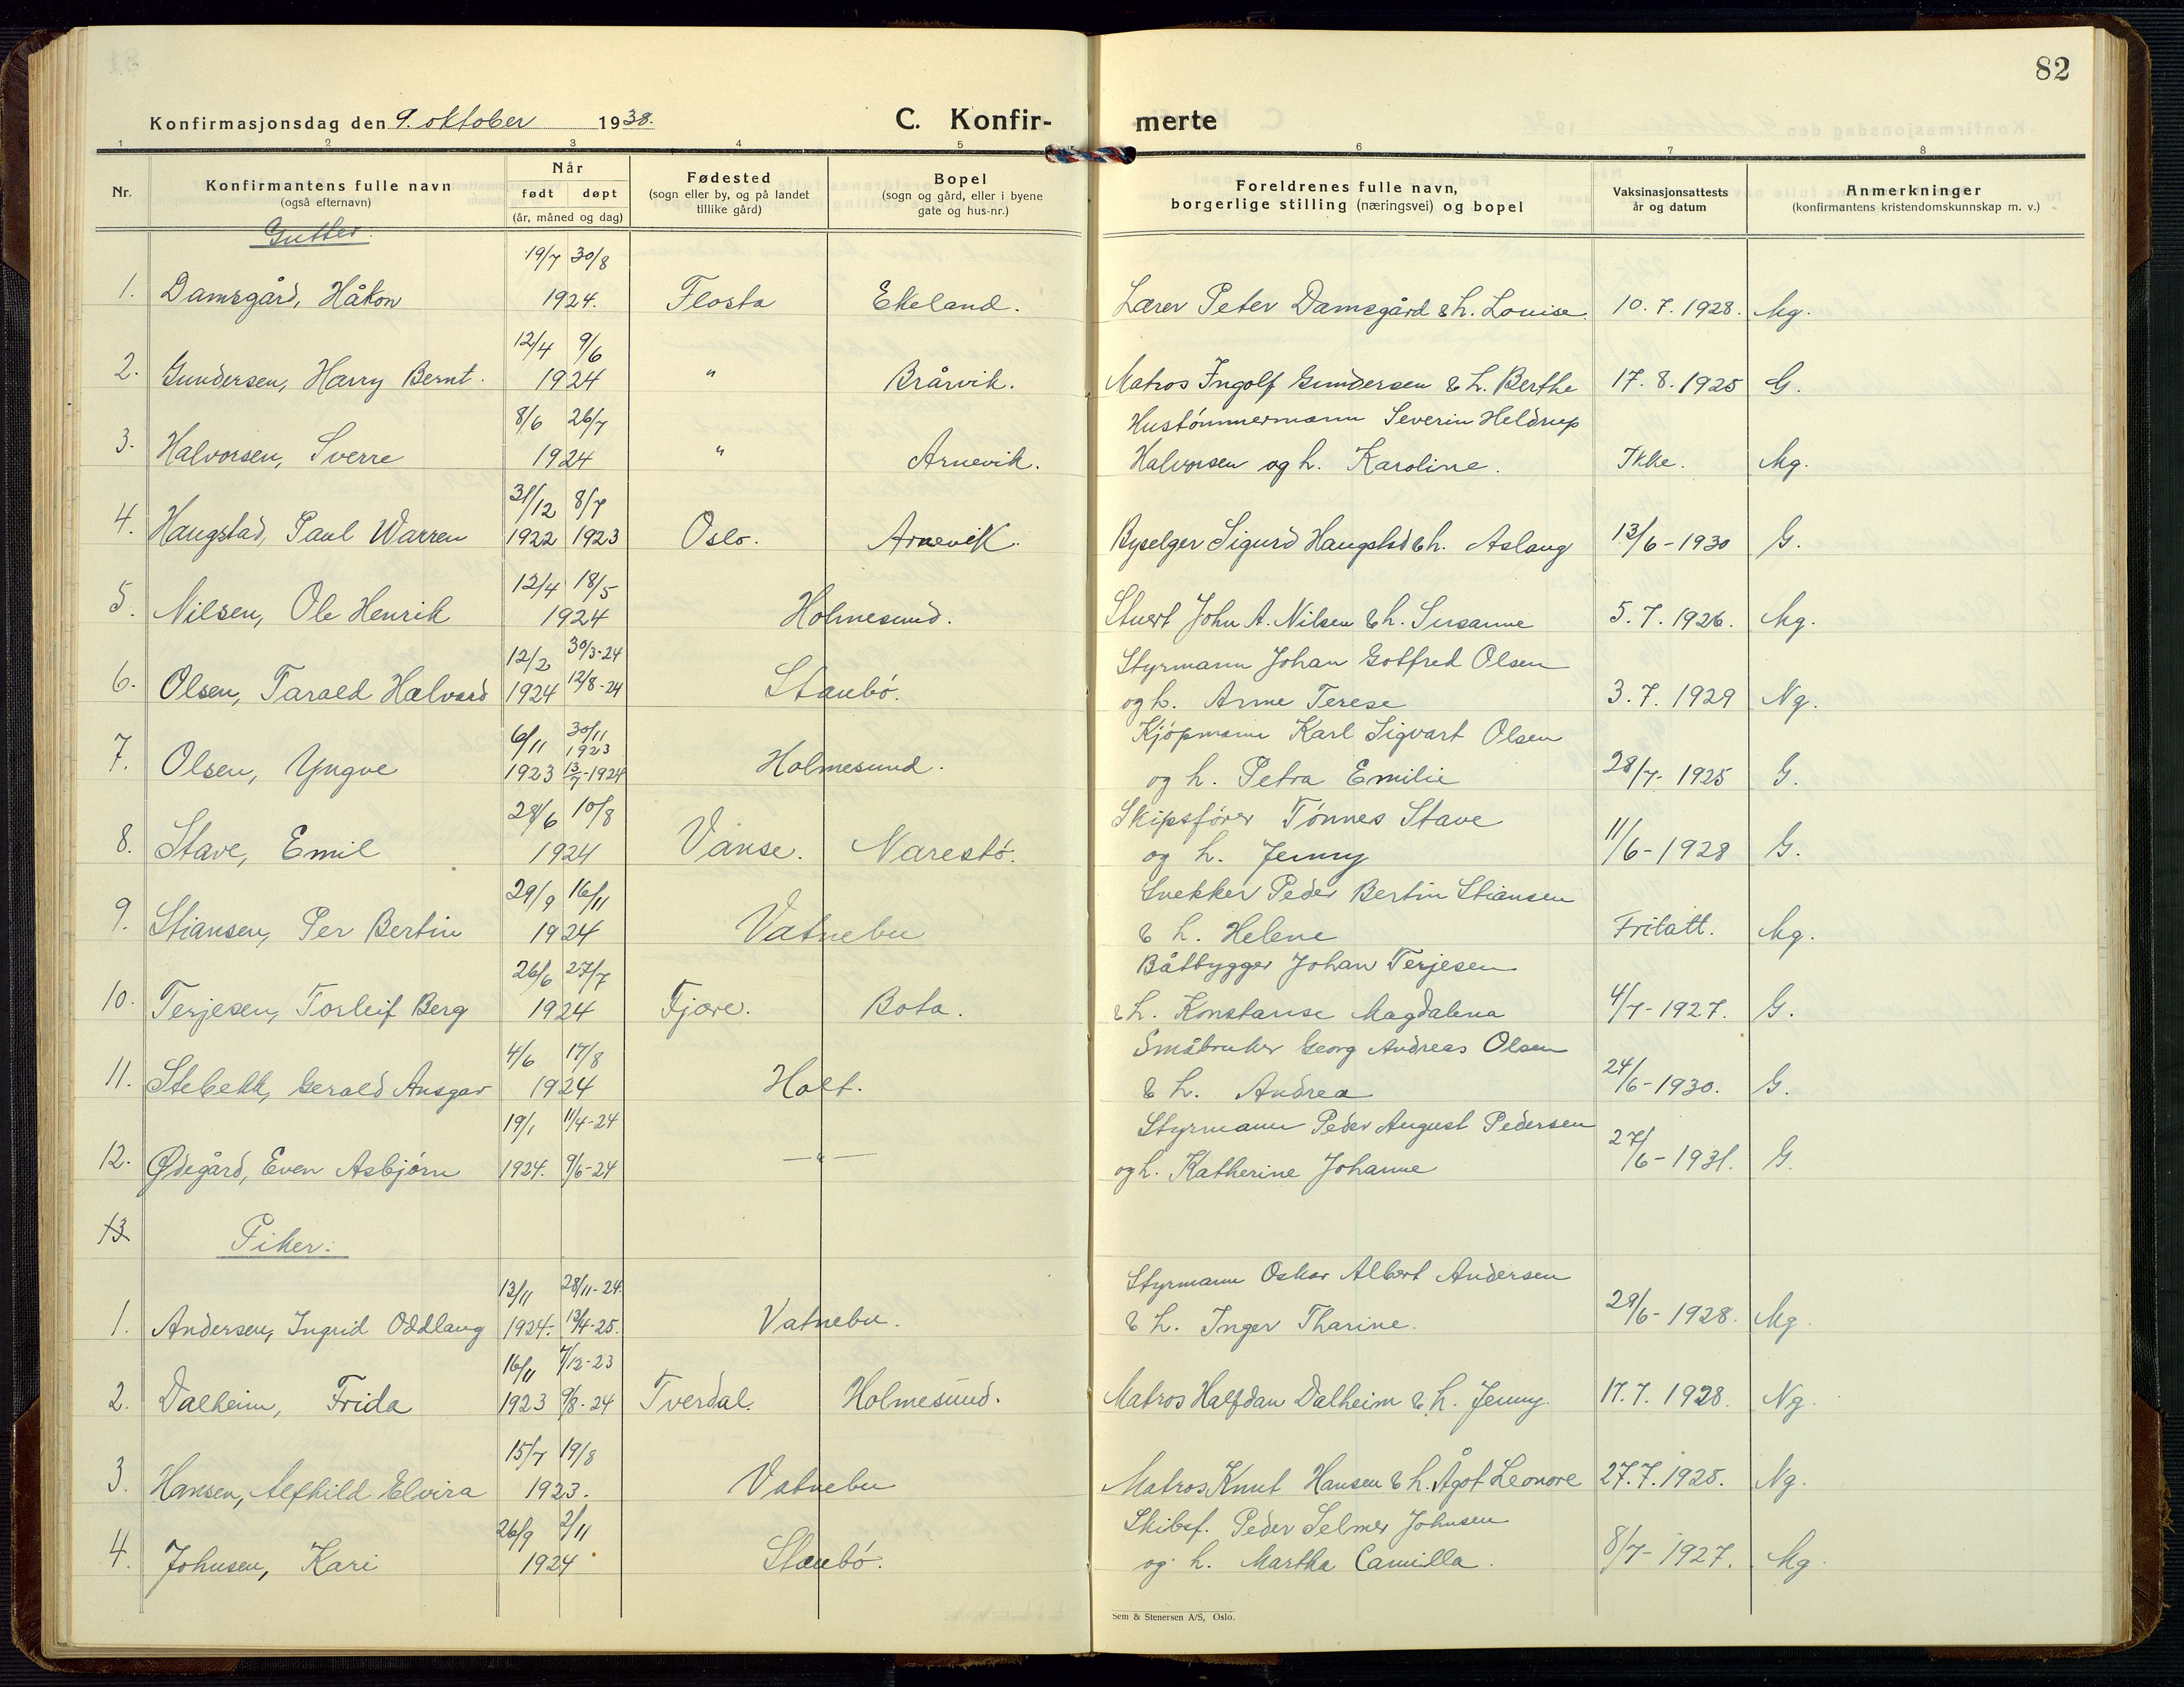 82
Konfirmasjonsdag den 9. oktober 1938.
C. Konfir-
merte
1 2 3 4 5 6 7 8
Nr.
Konfirmantens fulle navn
(også efternavn)
Når
født døpt
(år, måned og dag)
Fødested
(sogn eller by, og på landet
tillike gård)
Bopel
(sogn og gård, eller i byene
gate og hus-nr.)
Foreldrenes fulle navn,
borgerlige stilling (næringsvei) og bopel
Vaksinasjonsattests
år og datum
Anmerkninger
(konfirmantens kristendomskunnskap m. v.)
Gutter:
19/7 30/8
1. Damsgård, Håkon 1924. Flosta Ekeland. Lærer Peter Damsgård & h. Louise. 10.7.1928. Mg.
12/4 9/6
2. Gundersen, Harry Bernt. 1924 " Brårvik. Matros Ingolf Gundersen & h. Berthe 17.8.1925 G.
8/6 26/7 Hustømmermann Severin Heldrup
3. Halvorsen, Sverre 1924 " Arnevik. Halvorsen og h. Karoline. Ikke. Mg.
31/12 8/7
4. Haugstad, Paul Warren 1922 1923 Oslo. Arnevik. Byselger Sigurd Haugstad & h. Aslaug 13/6-1930 G.
12/4 18/5
5. Nilsen, Ole Henrik 1924 Holmesund. Stuert John A. Nilsen & h. Susanne 5.7.1926. Mg.
12/2 30/3-24 Styrmann Johan Gotfred Olsen
6. Olsen, Tarald Halvard 1924 12/8-24 Staubø. og h. Anne Terese 3.7.1929 Ng.
6/11 30/11 1923 Kjøpmann Karl Sigvart Olsen
7. Olsen, Yngve 1923 13/7-1924 Holmesund. og h. Petra Emilie 28/7-1925 G.
28/6 10/8 Skipsfører Tønnes Stave
8. Stave, Emil 1924 Vanse. Narestø. og h. Jenny 11/6-1928 G.
29/9 16/11 Snekker Peder Bertin Stiansen
9. Stiansen, Per Bertin 1924 Vatnebu & h. Helene Fritatt. Mg.
26/6 27/7 Båtbygger Johan Terjesen
10. Terjesen, Torleif Berg 1924 Fjære. Bota. & h. Konstanse Magdalena 4/7-1927. G.
4/6 17/8 Småbruker Georg Andreas Olsen
11. Stebekk, Gerald Ansgar 1924 Holt. & h. Andrea 24/6-1930. G.
19/1 11/4-24 Styrmann Peder August Pedersen
12. Ødegård, Even Asbjørn 1924. 9/6-24 —"— og h. Katherine Johanne 27/6-1931. G.
13 Piker:
13/11 28/11-24. Styrmann Oskar Albert Andersen
1. Andersen, Ingrid Oddlaug 1924. 13/4-25. Vatnebu. & h. Inger Tharine. 29/6-1928. Mg.
16/11 7/12-23
2. Dalheim, Frida 1923 9/8-24 Tverdal. Holmesund. Matros Halfdan Dalheim & h. Jenny. 17.7.1928. Ng.
15/7 19/8
3. Hansen, Alfhild Elvira 1923. Vatnebu Matros Knut Hansen & h. Ågot Leonore 27.7.1925. Ng.
26/9 2/11 Skibsf. Peder Selmer Johnsen
4. Johnsen, Kari 1924 Staubø. og h. Martha Camilla. 8/7-1927. Mg.
Sem & Stenersen A/S, Oslo.